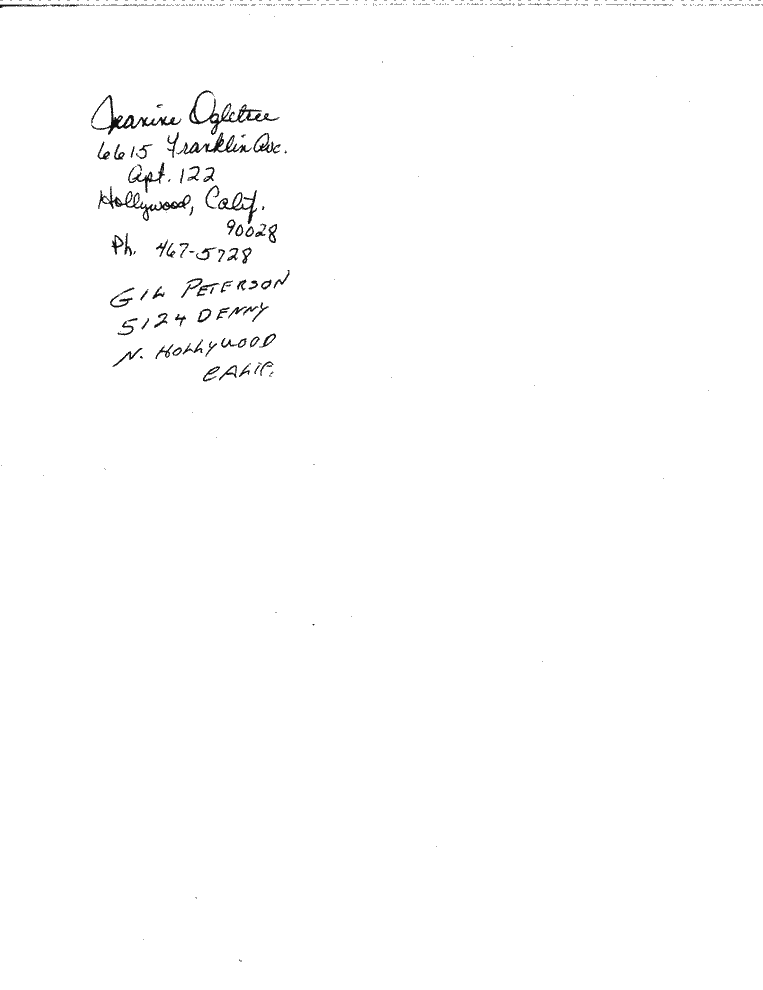 Jeanine Ogletree
6615 Franklin Ave.
Apt. 122
Hollywood, Calif.
90028
Ph. 467-5728
GIL PETERSON
5124 DENNY
N. HOLLYWOOD
CALIF.